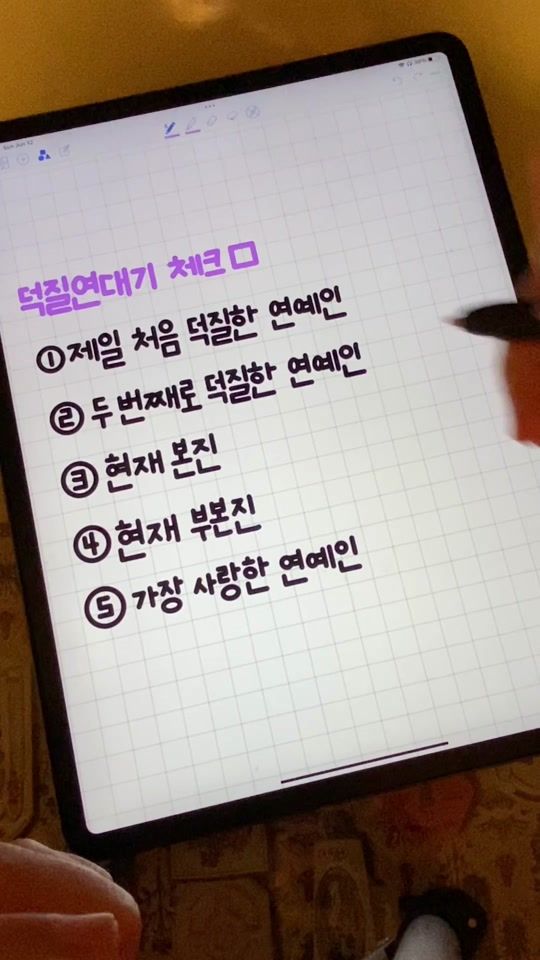 Sun Jun 12
덕질연대기 체크□
①제일 처음 덕질한 연예인
②두번째로 덕질한 연예인
③현재 본진
④현재 부본진
⑤가장 사랑한 연예인